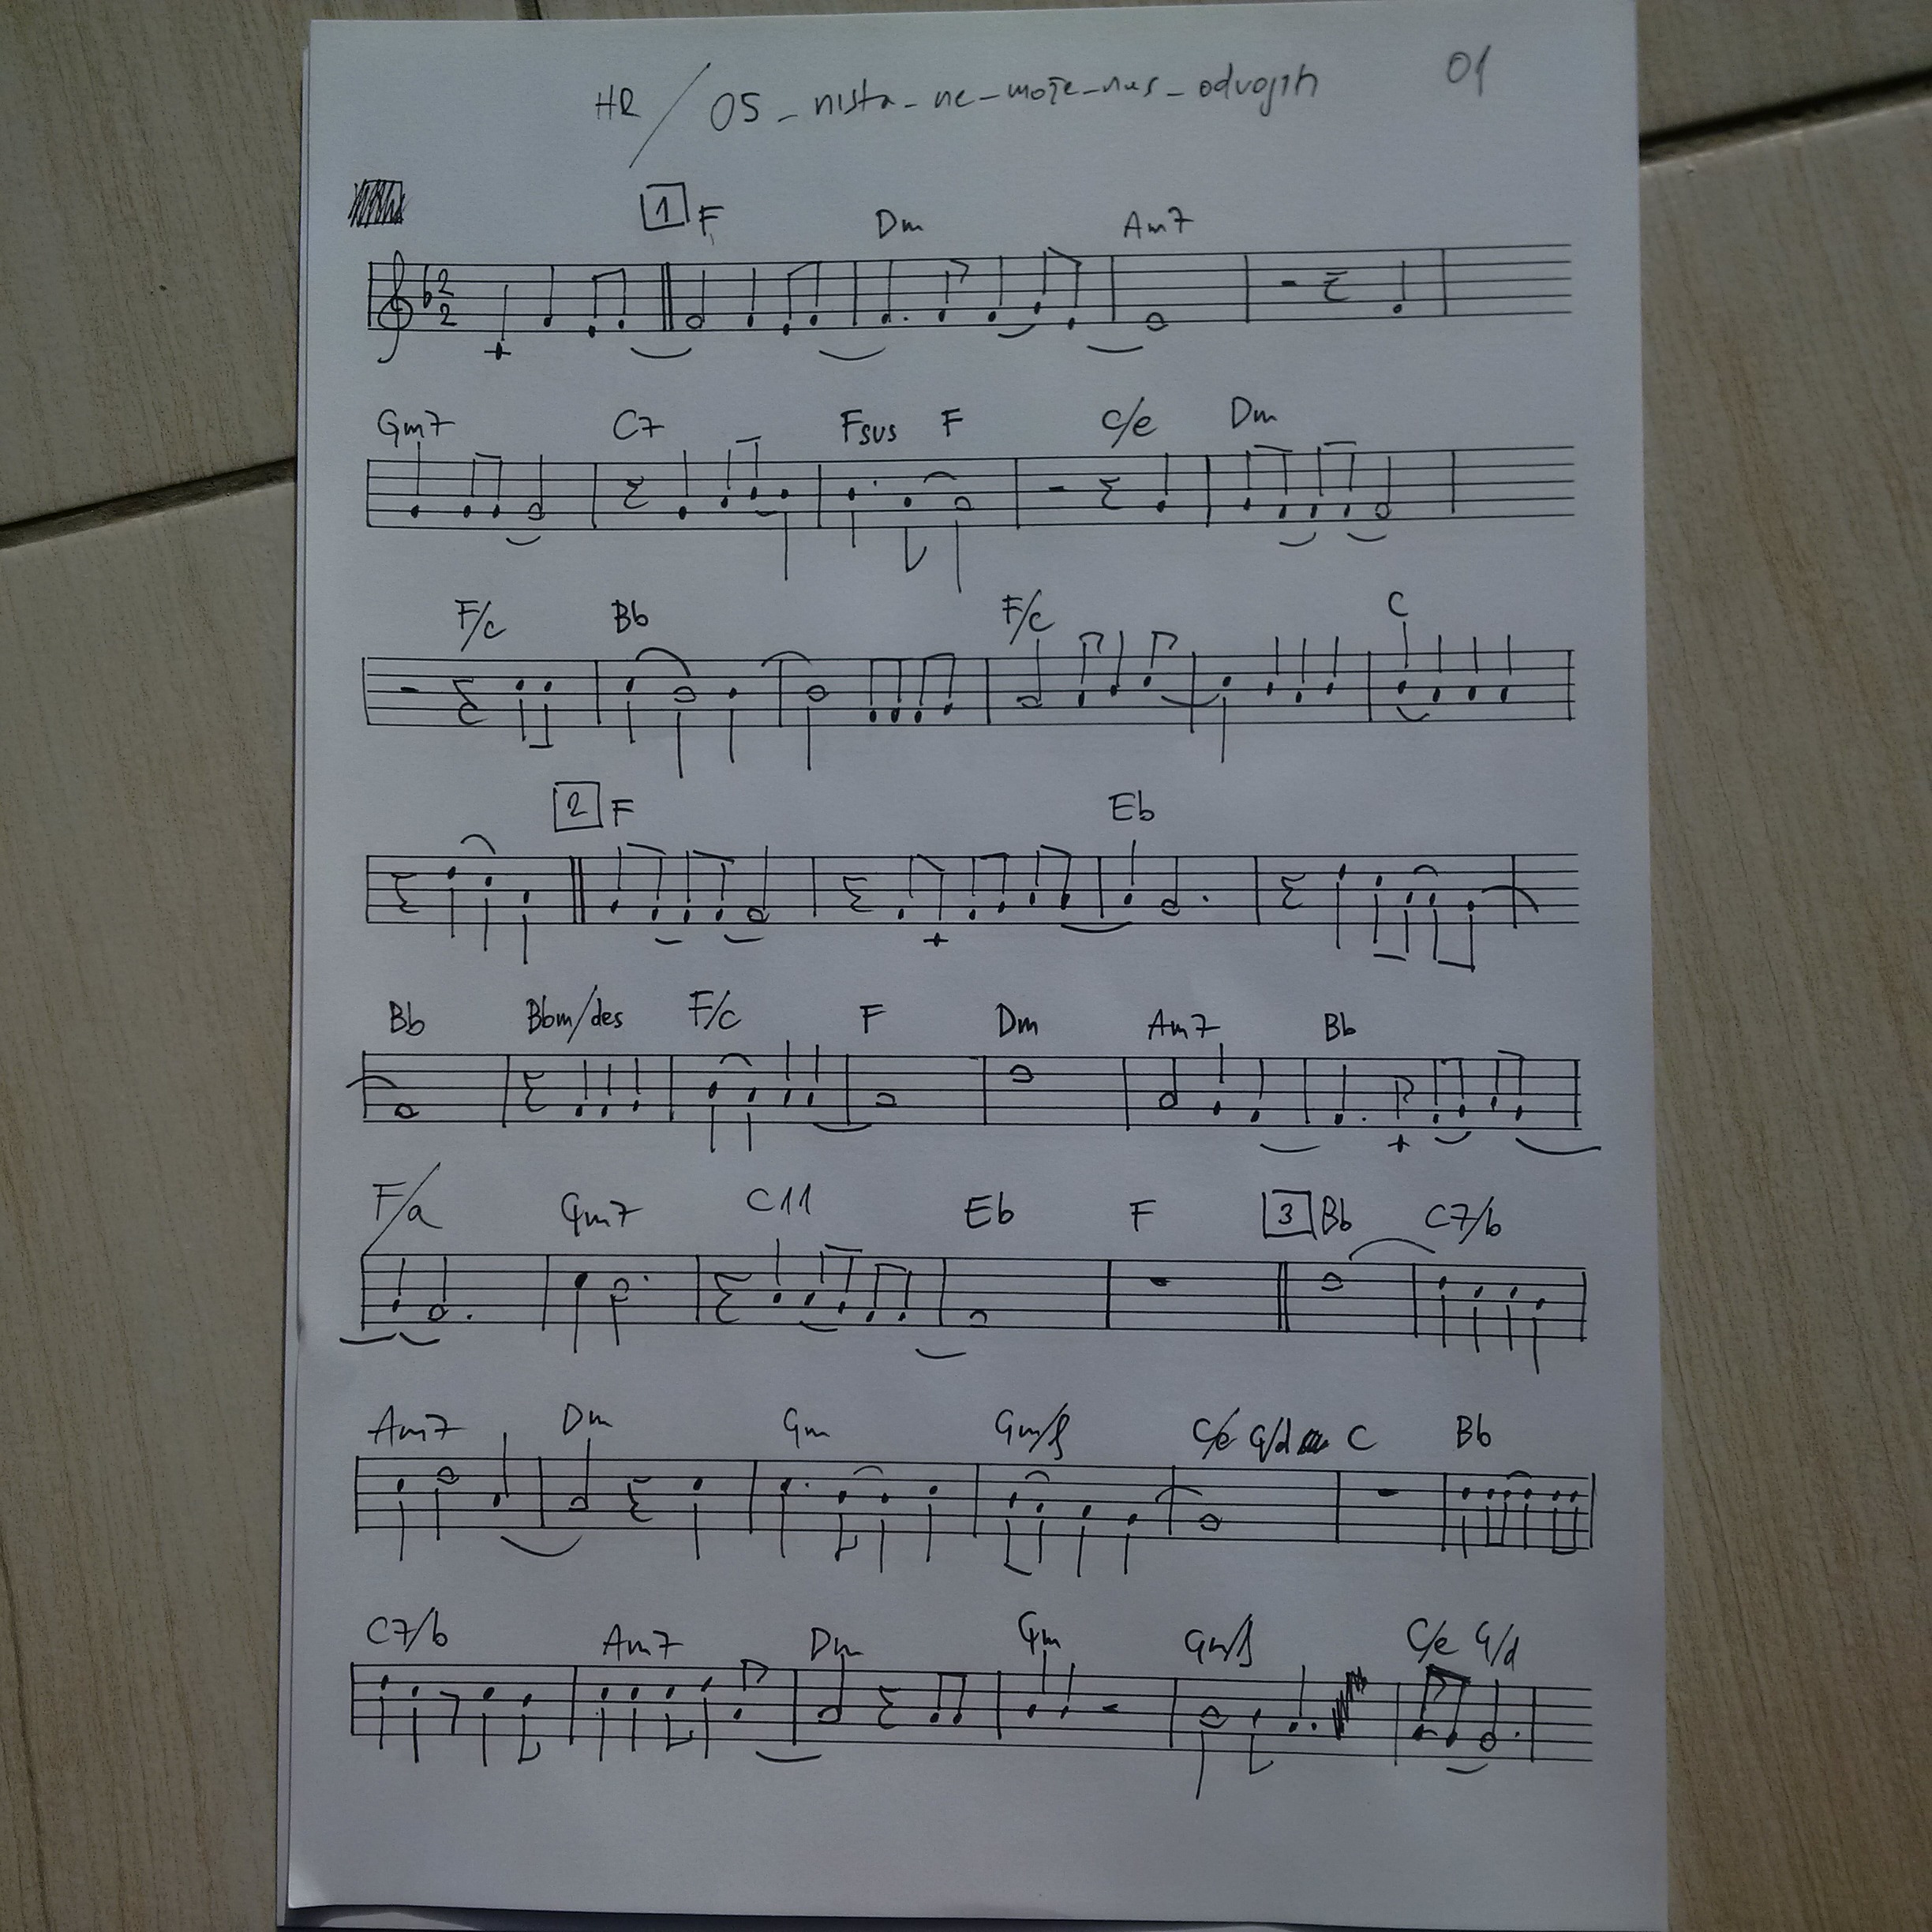 HR / 05_nista_ne_može_nas_odvojiti 01
1 F Dm Am7
2
2
Gm7 C7 Fsus F C/e Dm
F/c Bb F/c C
2 F Eb
Bb Bbm/des F/c F Dm Am7 Bb
F/a Gm7 C11 Eb F 3 Bb C7/b
Am7 Dm Gm Gm/f C/e G/d C Bb
C7/b Am7 Dm Gm Gm/f C/e G/d